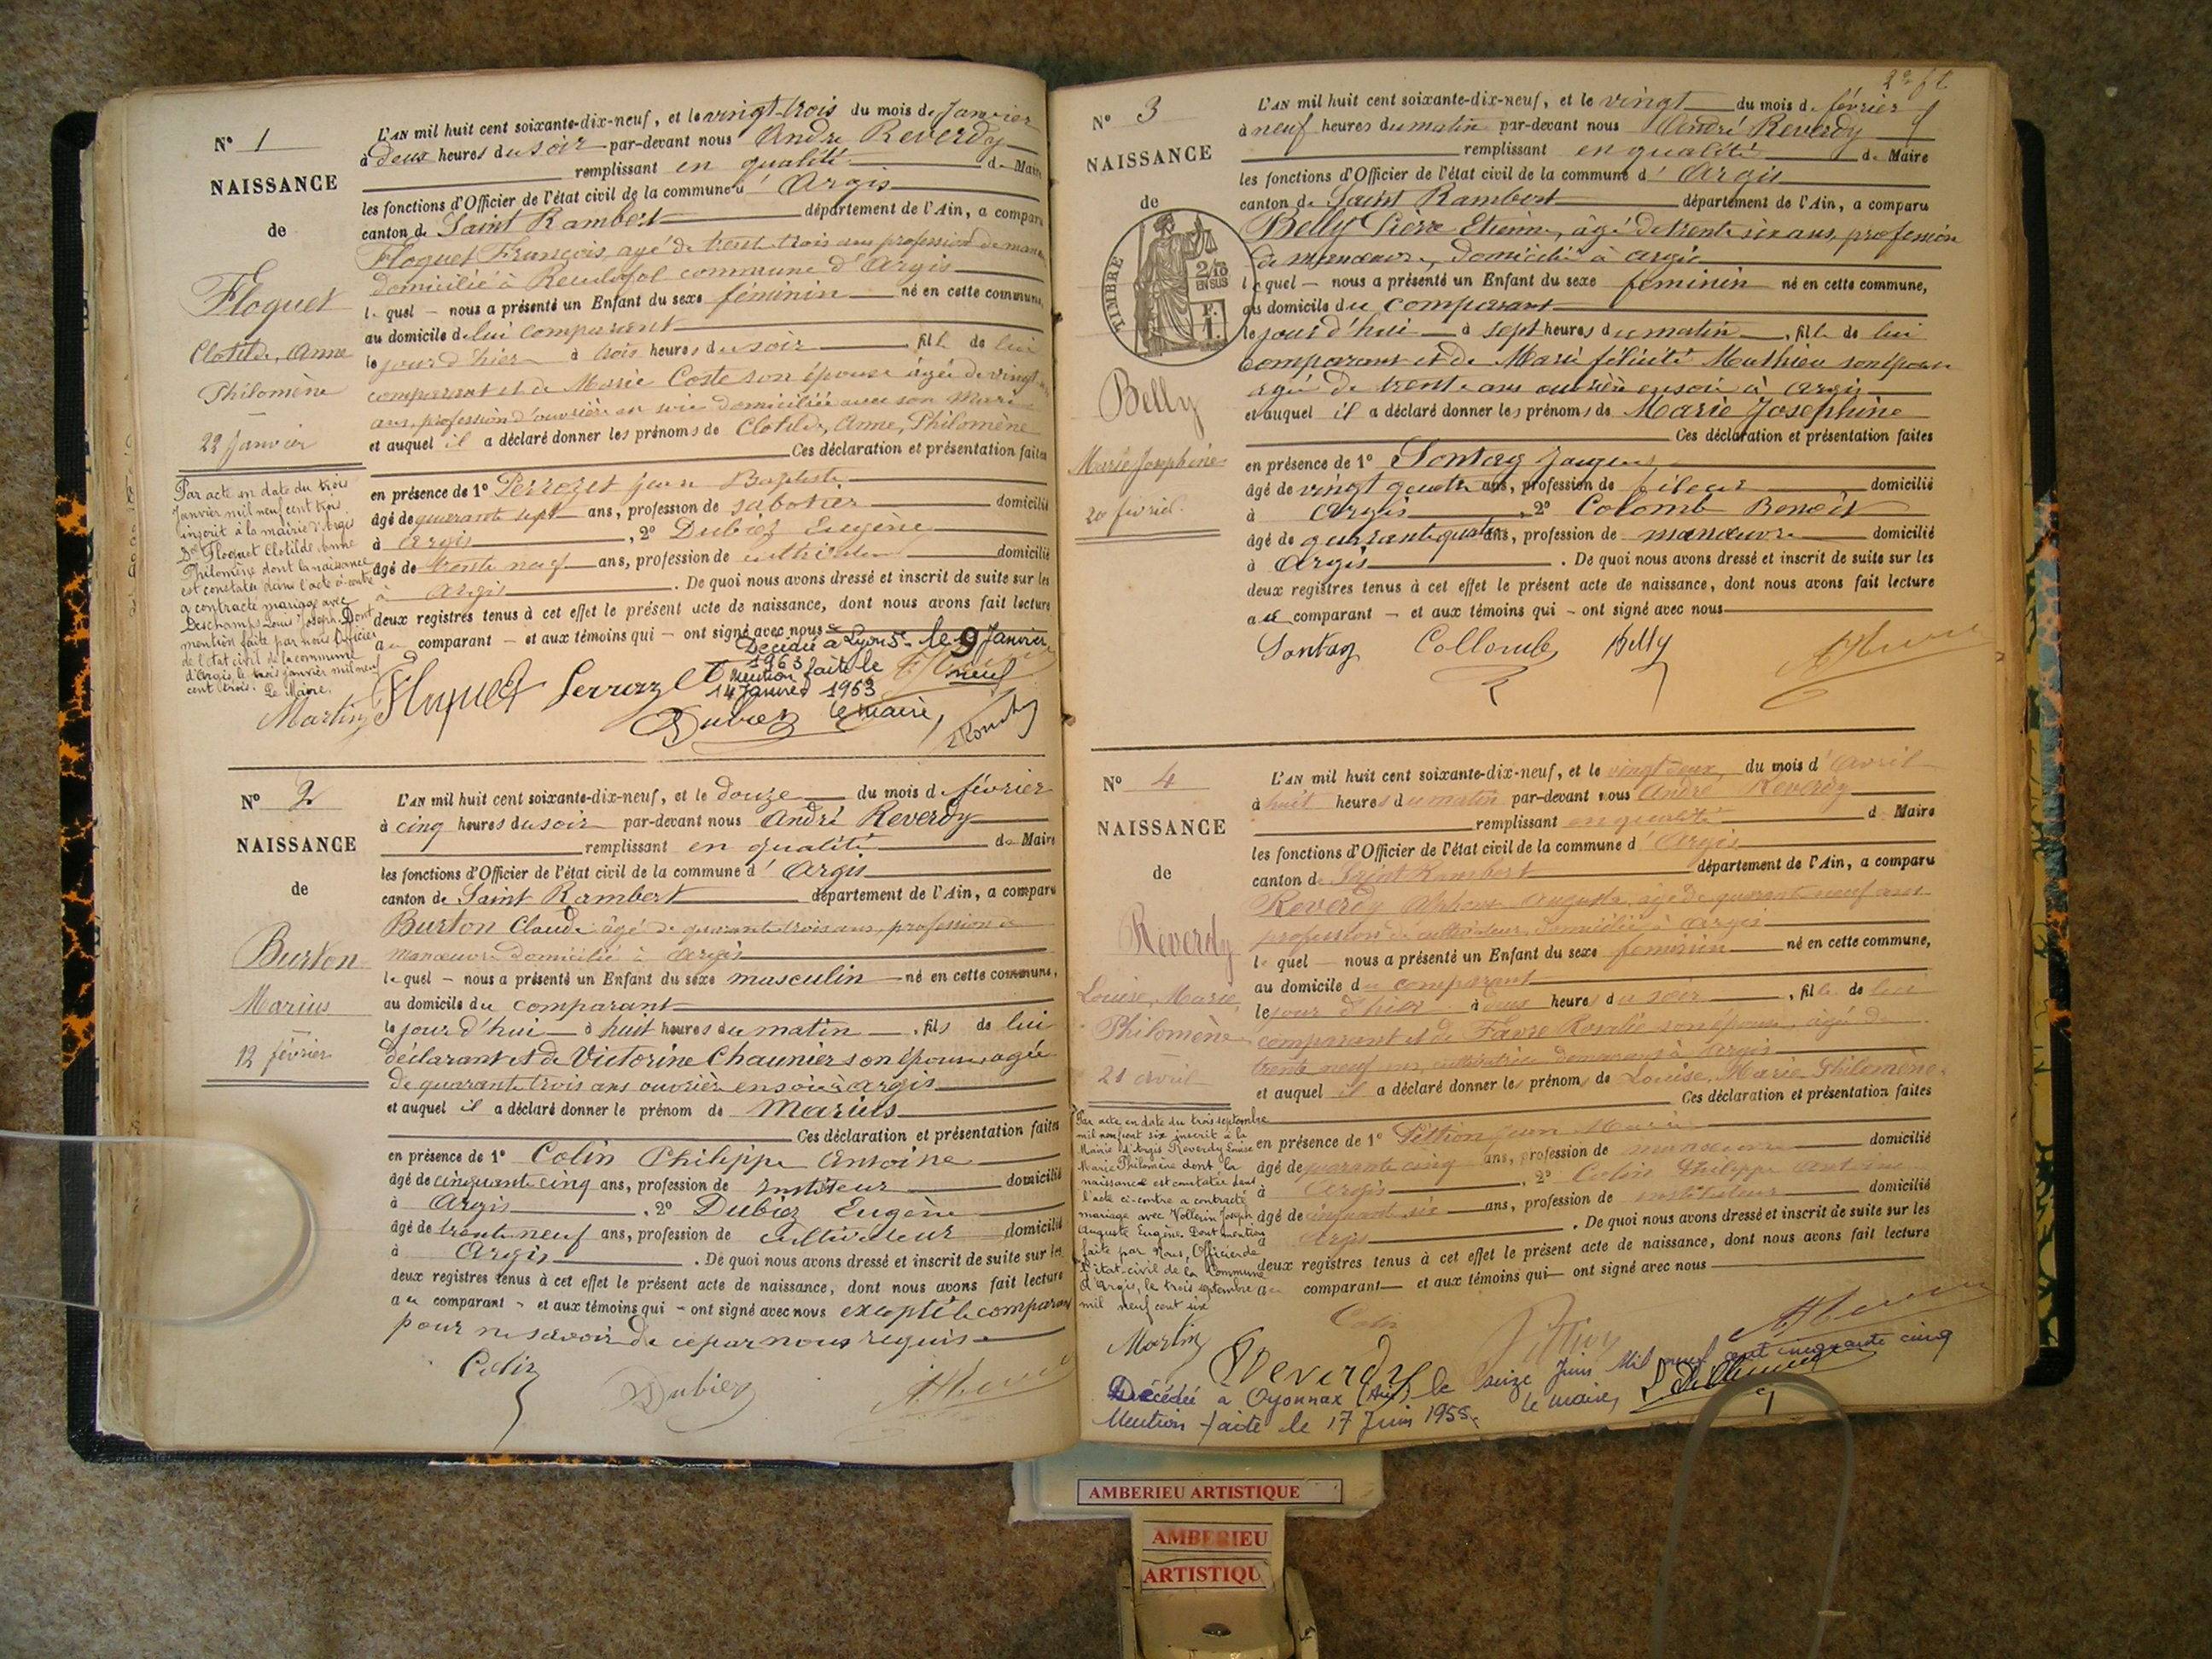 N° 1
NAISSANCE
de
Floquet
Clotilde, Anne
Philomène
22 Janvier
Par acte en date du trois
Janvier mil neuf cent trois
inscrit à la mairie d'Argis
Floquet Clotilde Anne
Philomène dont la naissance
est constatée dans l'acte ci-contre
a contracté mariage avec
Deschamps Louis Joseph. Dont
mention faite par nous Officier
de l'état civil de la commune
d'Argis, le trois janvier mil neuf
cent trois. Le Maire,
Martin
L'AN mil huit cent soixante-dix-neuf, et le vingt-trois du mois de Janvier
à deux heures du soir par-devant nous André Reverdy
remplissant en qualité de Maire
les fonctions d'Officier de l'état civil de la commune d' Argis
canton de Saint Rambert département de l'Ain, a comparu
Floquet François, agé de trente trois ans profession de
domicilié à commune d'Argis
le quel – nous a présenté un Enfant du sexe féminin né en cette commune,
au domicile de lui comparant
le jour d'hier à trois heures du soir , fille de lui
comparant et de Marie Coste son épouse âgée de vingt
ans, profession d'ouvrière en soie domiciliée avec son mari
et auquel il a déclaré donner les prénoms de Clotilde, Anne, Philomène
Ces déclaration et présentation faites
en présence de 1° Perrozet jean Baptiste
âgé de quarante sept ans, profession de sabotier domicilié
à Argis , 2° Dubiez Eugène
âgé de trente neuf ans, profession de cultivateur domicilié
à Argis . De quoi nous avons dressé et inscrit de suite sur les
deux registres tenus à cet effet le présent acte de naissance, dont nous avons fait lecture
au comparant – et aux témoins qui – ont signé avec nous
Décédée à Lyon 5e le 9 Janvier
1963 neuf
Mention faite le
14 Janvier 1963
le maire,
Floquet Perrozet
Dubiez
N° 2
NAISSANCE
de
Burton
Marius
12 février
L'AN mil huit cent soixante-dix-neuf, et le douze du mois de février
à cinq heures du soir par-devant nous André Reverdy
remplissant en qualité de Maire
les fonctions d'Officier de l'état civil de la commune d' Argis
canton de Saint Rambert département de l'Ain, a comparu
Burton Claude âgé de quarante trois ans, profession de
manœuvre domicilié à Argis
le quel – nous a présenté un Enfant du sexe masculin né en cette commune,
au domicile du comparant
le jour d'hui à huit heures du matin , fils de lui
déclarant et de Victorine Chaunier son épouse agée
de quarante trois ans ouvrière en soie à Argis
et auquel il a déclaré donner le prénom de Marius
Ces déclaration et présentation faites
en présence de 1° Colin Philippe Antoine
âgé de cinquante cinq ans, profession de instituteur domicilié
à Argis , 2° Dubiez Eugène
âgé de trente neuf ans, profession de cultivateur domicilié
à Argis . De quoi nous avons dressé et inscrit de suite sur les
deux registres tenus à cet effet le présent acte de naissance, dont nous avons fait lecture
au comparant – et aux témoins qui – ont signé avec nous excepté le comparant
pour ne savoir de ce par nous requis
Colin Dubiez
N° 3
NAISSANCE
de
TIMBRE
2/10
EN SUS
F.
1.
Belly
Marie Joséphine
20 février
L'AN mil huit cent soixante-dix-neuf, et le vingt du mois de février
à neuf heures du matin par-devant nous André Reverdy
remplissant en qualité de Maire
les fonctions d'Officier de l'état civil de la commune d' Argis
canton de Saint Rambert département de l'Ain, a comparu
Belly Pierre Etienne, âgé de trente six ans, profession
de manœuvre, domicilié à Argis
le quel – nous a présenté un Enfant du sexe féminin né en cette commune,
au domicile du comparant
le jour d'hui à sept heures du matin , fille de lui
comparant et de Marie félicité Mathieu son épouse
agée de trente ans ouvrière en soie à Argis
et auquel il a déclaré donner les prénoms de Marie Joséphine
Ces déclaration et présentation faites
en présence de 1° Sontag Jacques
âgé de vingt quatre ans, profession de fileur domicilié
à Argis , 2° Colomb Benoit
âgé de quarante quatre ans, profession de manœuvre domicilié
à Argis . De quoi nous avons dressé et inscrit de suite sur les
deux registres tenus à cet effet le présent acte de naissance, dont nous avons fait lecture
au comparant – et aux témoins qui – ont signé avec nous
Sontag Collomb Belly
N° 4
NAISSANCE
de
Reverdy
Louise, Marie
Philomène
21 avril
Par acte en date du trois septembre
mil neuf cent six inscrit à la
Mairie d'Argis Reverdy Louise
Marie Philomène dont la
naissance est constatée dans
l'acte ci-contre a contracté
mariage avec Vollerin Joseph
Auguste Eugène. Dont mention
faite par Nous, Officier de
l'état-civil de la Commune
d'Argis, le trois septembre
mil neuf cent six
Martin
L'AN mil huit cent soixante-dix-neuf, et le vingt deux du mois d' Avril
à huit heures du matin par-devant nous André Reverdy
remplissant en qualité de Maire
les fonctions d'Officier de l'état civil de la commune d' Argis
canton de Saint Rambert département de l'Ain, a comparu
Reverdy Alphonse Auguste, âgé de quarante neuf ans
profession de cultivateur, domicilié à Argis
le quel – nous a présenté un Enfant du sexe féminin né en cette commune,
au domicile du comparant
le jour d'hier à deux heures du soir , fille de lui
comparant et de Favre Rosalie son épouse, âgée de
trente neuf ans, cultivatrice demeurant à Argis
et auquel il a déclaré donner les prénoms de Louise, Marie Philomène
Ces déclaration et présentation faites
en présence de 1° Pettion Jean Marie
âgé de quarante cinq ans, profession de manœuvre domicilié
à Argis , 2° Colin Philippe Antoine
âgé de cinquante six ans, profession de instituteur domicilié
à Argis . De quoi nous avons dressé et inscrit de suite sur les
deux registres tenus à cet effet le présent acte de naissance, dont nous avons fait lecture
au comparant – et aux témoins qui – ont signé avec nous
Colin
Reverdy
Décédée à Oyonnax (Ain) le seize Juin Mil neuf cent cinquante cinq
Mention faite le 17 Juin 1955. le maire,
AMBERIEU ARTISTIQUE
AMBERIEU
ARTISTIQU